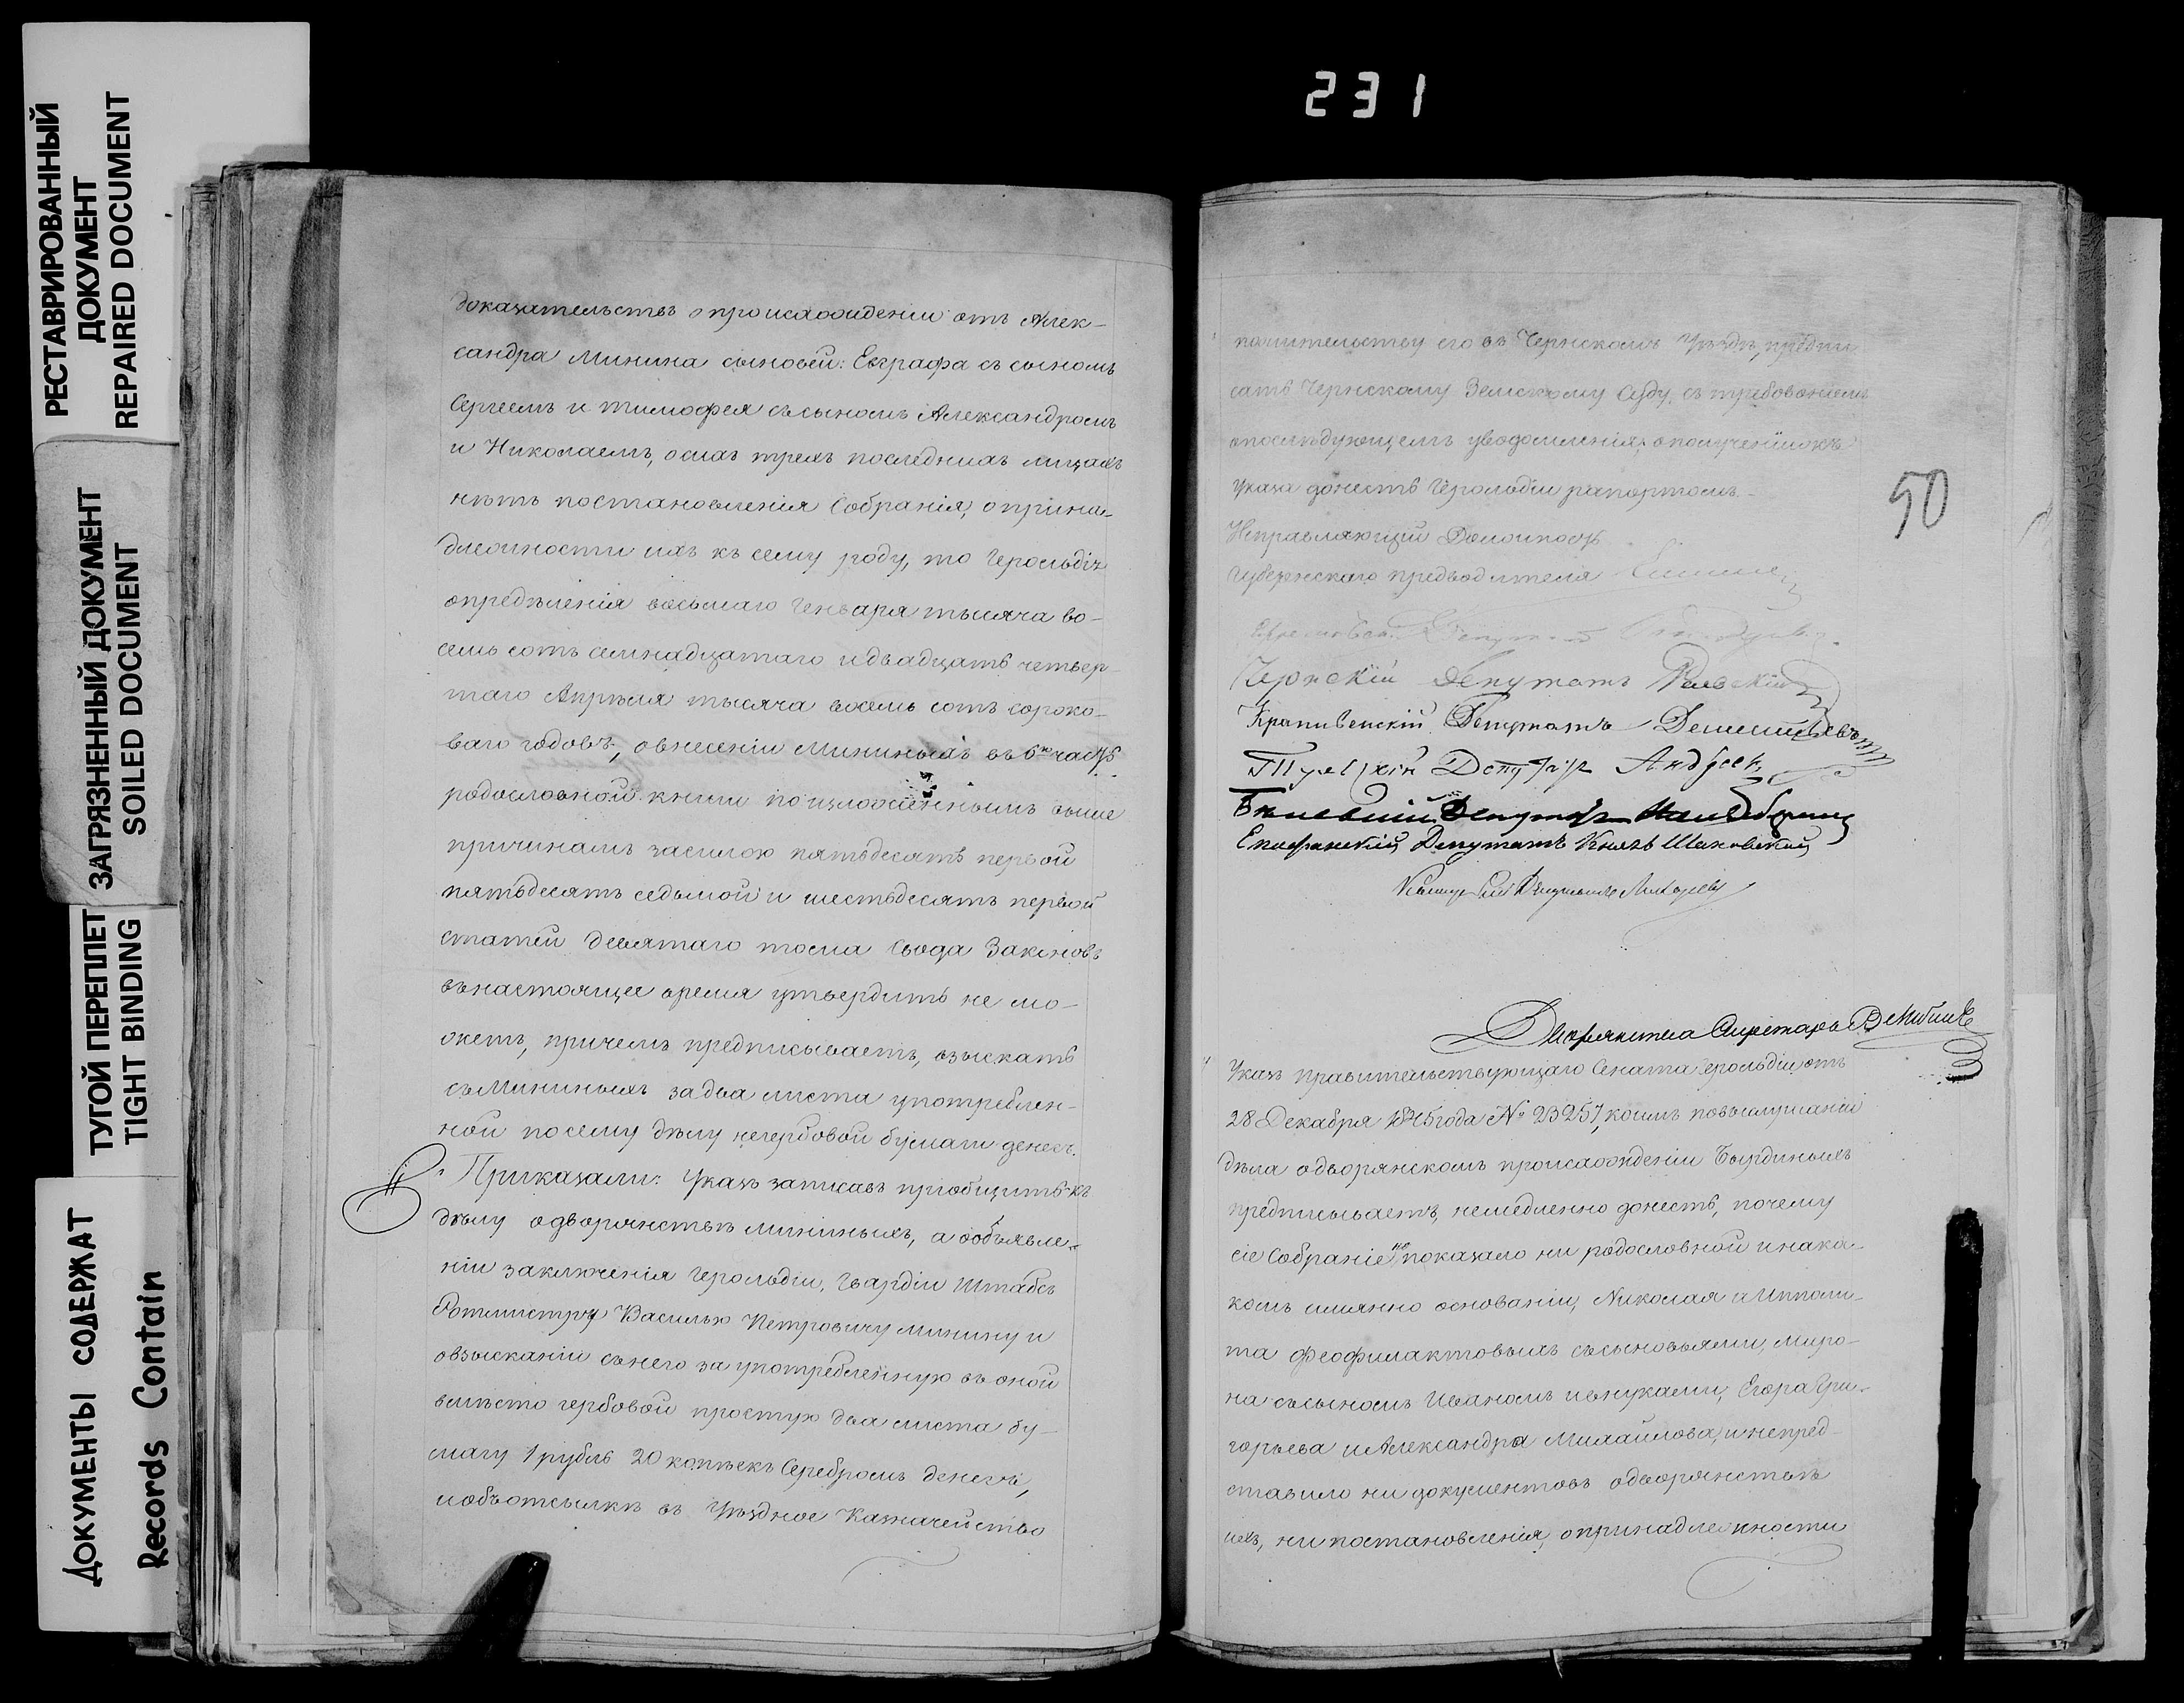 231
РЕСТАВРИРОВАННЫЙ
ДОКУМЕНТ
REPAIRED DOCUMENT
ЗАГРЯЗНЕННЫЙ ДОКУМЕНТ
SOILED DOCUMENT
ТУГОЙ ПЕРЕПЛЕТ
TIGHT BINDING
ДОКУМЕНТЫ СОДЕРЖАТ
Records Contain
доказательствъ о происхожденіи отъ Алек-
сандра Минина сыновей: Евграфа съ сыномъ
Сергеемъ и Тимофея съ сыномъ Александромъ
и Николаемъ, о сихъ трехъ последнихъ лицахъ
нѣтъ постановленія Собранія, о прина-
длежности ихъ къ сему роду, то Герольдія
опредѣленія восьмаго Генваря тысяча во-
семь сотъ семнадцатаго и двадцать четвер-
таго Апрѣля тысяча восемь сотъ сороко-
ваго годовъ, о внесеніи Мининыхъ въ 6ю часть
родословной книги по изложеннымъ выше
причинамъ за силою пятьдесятъ первой
пятьдесятъ седьмой и шестьдесятъ первой
статей девятаго тома Свода Законовъ
въ настоящее время утвердить не мо-
жетъ, причемъ предписываетъ, взыскать
съ Мининыхъ за два листа употреблен-
ной по сему дѣлу негербовой бумаги денегъ.
Приказали: Указъ записавъ пріобщить къ
дѣлу о дворянствѣ Мининыхъ, а о объявле-
ніи заключенія Герольдіи, Гвардіи Штабсъ
Ротмистру Василью Петровичу Минину и
о взысканіи съ него за употребленную въ оной
вмѣсто гербовой простую два листа бу-
магу 1 рубль 20 копѣекъ Серебромъ денегъ,
и объ отсылкѣ въ Уѣздное Казначейство
50
по жительству его въ Чернскомъ Уѣздѣ, предпи
сать Чернскому Земскому Суду, съ требованіемъ
о послѣдующемъ уведомленія, о полученіи жъ
указа донесть Герольдіи рапортомъ.
Исправляющій Должность
Губернскаго предводителя
Депутатъ
Чернскій Депутатъ
Крапивенскій Депутатъ
Тульскій Депутатъ
Бѣлевскій Депутатъ
Епифанскій Депутатъ Князь Шаховской
Каширскій Депутатъ Лихаревъ
Дворянства Секретарь
Указъ правительствующаго Сената Герольдіи отъ
28 Декабря 1845 года № 23257, коимъ по выслушаніи
дѣла о дворянскомъ происхожденіи Бурдиныхъ
предписываетъ, немедленно донесть, почему
сіе Собраніе не показало ни родословной и на ка-
комъ имянно основаніи, Николая и Ипполи-
та Феофилактовыхъ съ сыновьями, Миро-
на съ сыномъ Иваномъ и внуками, Егора Гри-
горьева и Александра Михайлова, и непред-
ставило ни документовъ о дворянствѣ
ихъ, ни постановленія, о принадлежности